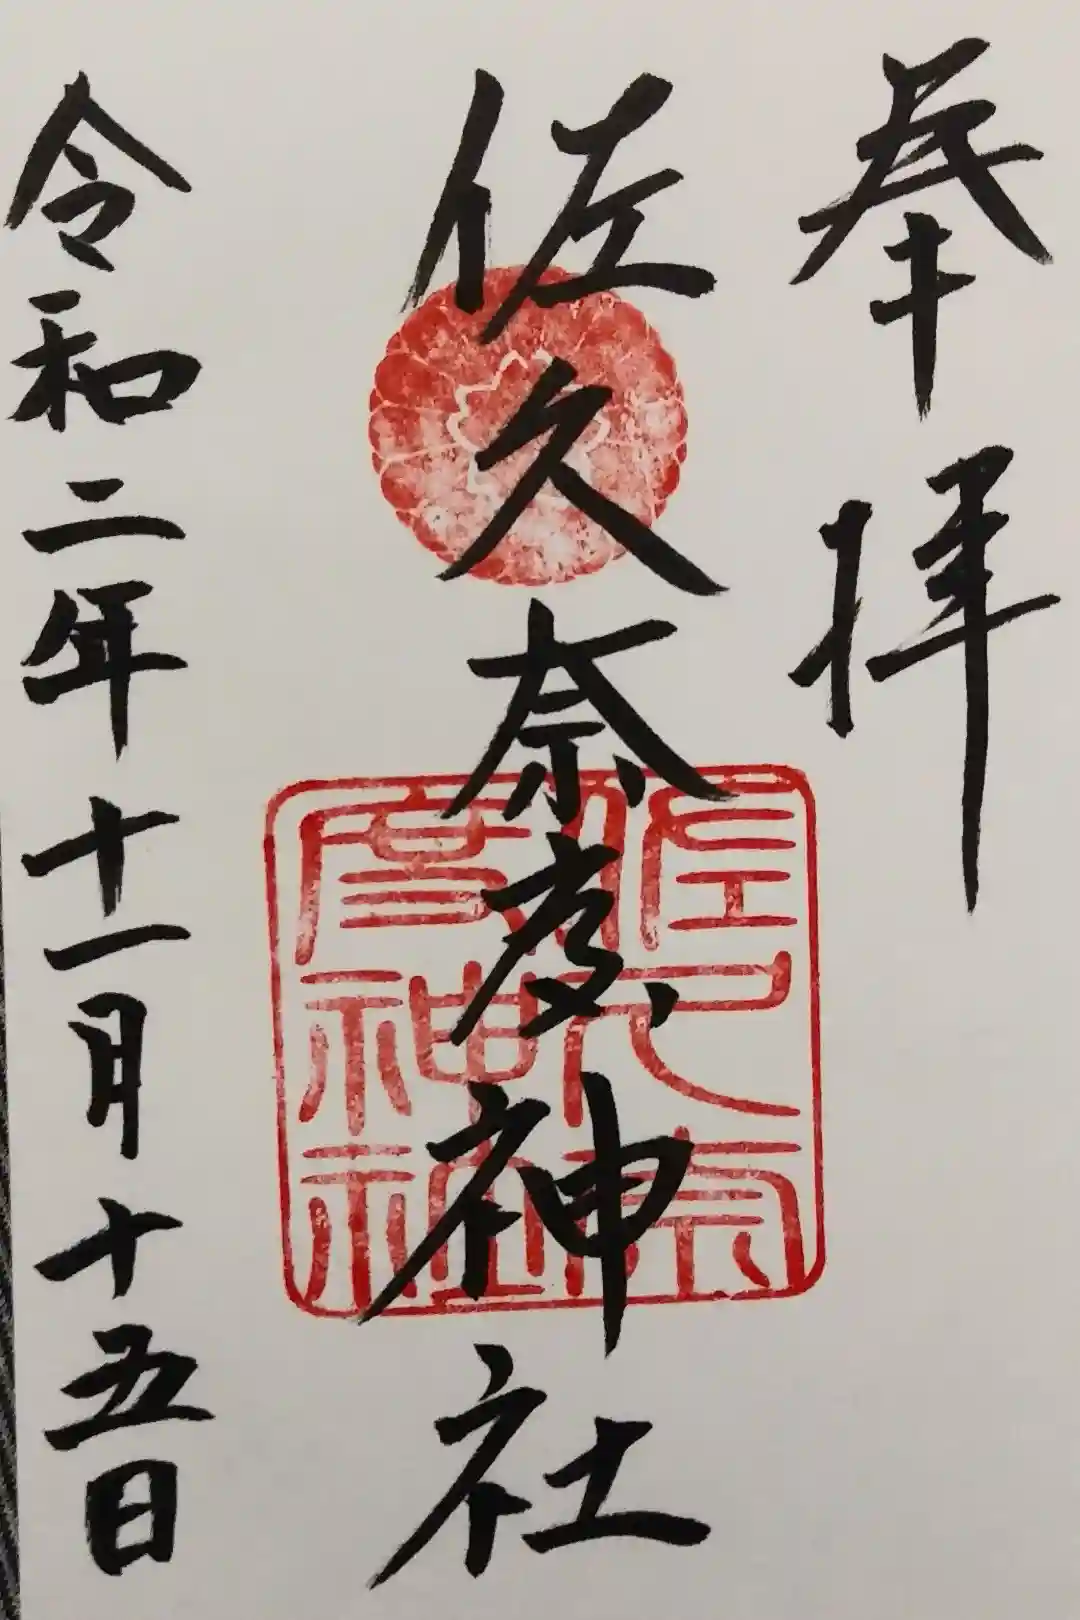 奉拝
佐久奈度神社
佐久奈度神社
令和二年十一月十五日